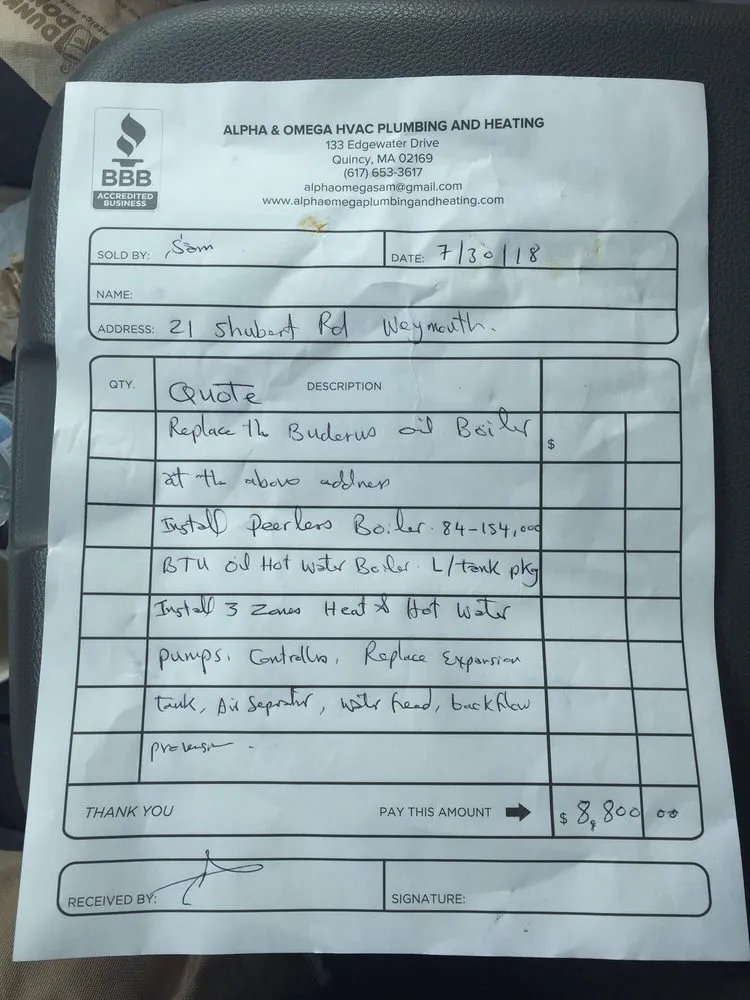 DUNK
DO
BBB
ACCREDITED
BUSINESS
ALPHA & OMEGA HVAC PLUMBING AND HEATING
133 Edgewater Drive
Quincy, MA 02169
(617) 653-3617
alphaomegasam@gmail.com
www.alphaomegaplumbingandheating.com
SOLD BY: Sam DATE: 7/30/18
NAME:
ADDRESS: 21 Shubert Rd Weymouth.
QTY. Quote DESCRIPTION
Replace the Buderus oil Boiler $
at the above address
Install Peerless Boiler. 84-154,000
BTU oil Hot Water Boiler. L/tank pkg
Install 3 Zones Heat & Hot Water
pumps. Controllers. Replace Expansion
tank, Air Seprator, water feed, backflow
THANK YOU PAY THIS AMOUNT $ 8,800 00
RECEIVED BY: SIGNATURE: